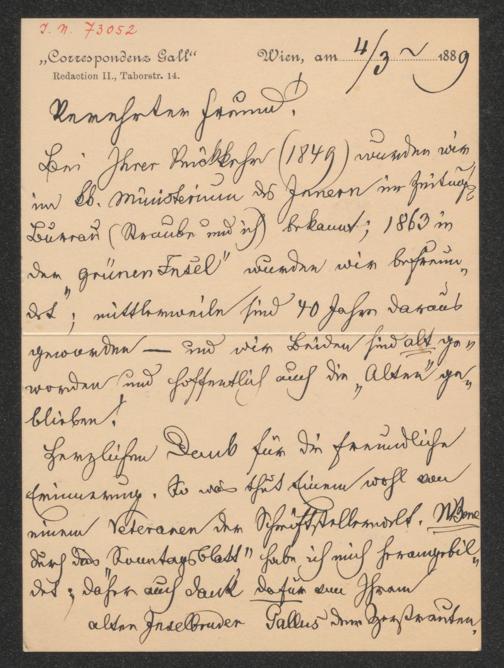 I. N. 73052
„Correspondenz Gall“
Wien, am 4/3 1889
Redaction II., Taborstr. 14.
Verehrter Freund!
Bei Ihrer Rückkehr (1849) wurden wir
im kk. Ministerium des Innern im Zeitungs
Bureau (Straube und ich) bekannt; 1863 in
der „grünen Insel“ wurden wir befreun„
det“; mittlerweile sind 40 Jahre daraus
geworden — und wir Beiden sind alt ge„
worden und hoffentlich auch die „Alten“ ge„
blieben!
Herzlichen Dank für die freundliche
Erinnerung. So was thut Einem wohl von
einem Veteranen der Schriftstellerwelt. NBene
durch das „Sonntagsblatt“ habe ich mich herangebil„
det; daher auch Dank dafür von Ihrem
alten Inselbruder Gallus dem Zerstreuten.